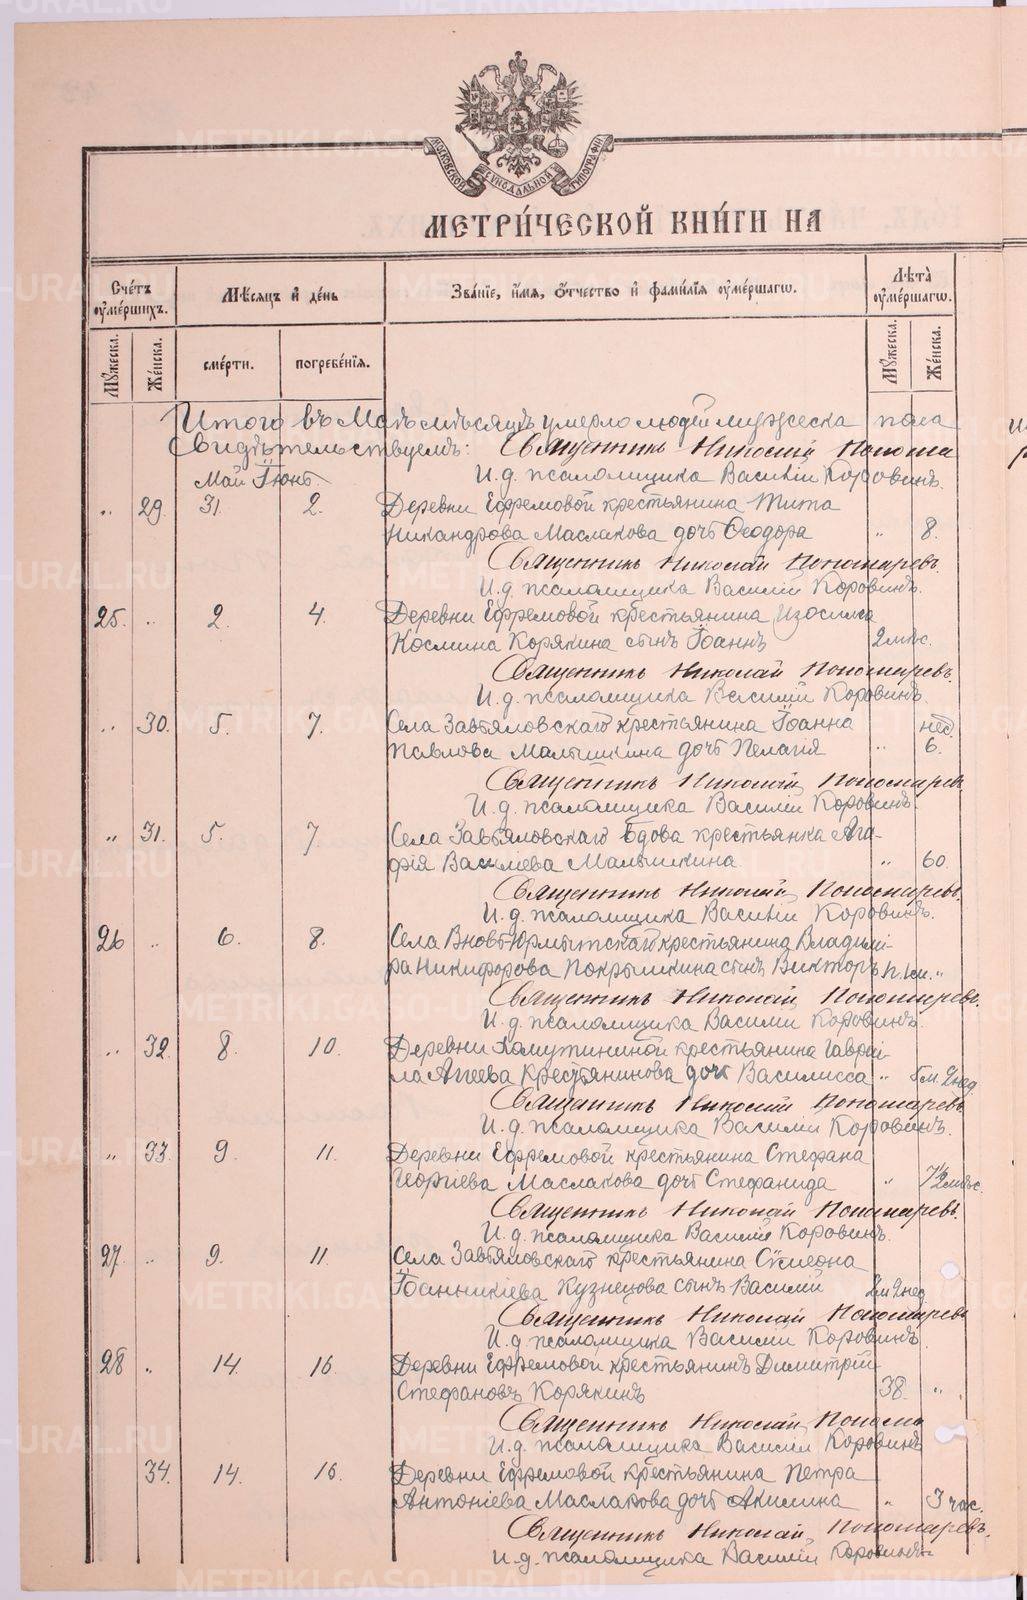 МОСКОВСКОЙ СѴНОДАЛЬНОЙ ТИПОГРАФІИ
МЕТРИ́ЧЕСКОЙ КНИ́ГИ НА
Сче́тъ ᲂу҆ме́ршихъ.
Мѣ́сяцъ и҆ де́нь
Зва́нїе, и҆́мѧ, ѻ҆́тчество и҆ фами́лїѧ ᲂу҆ме́ршагѡ.
Лѣ́та ᲂу҆ме́ршагѡ.
Мꙋ́жеска.
Же́нска.
сме́рти.
погребе́нїѧ.
Мꙋ́жеска.
Же́нска.
Итого въ Маѣ мѣсяцѣ умерло людей мужеска пола
Свидѣтельствуемъ: Священникъ Николай Понома
Май Іюнь. И. д. псаломщика Василій Коровинъ.
„ 29. 31. 2. Деревни Ефремовой крестьянина Тита
Никандрова Маслакова дочь Ѳеодора „ 8.
Священникъ Николай Пономаревъ.
И. д. псаломщика Василій Коровинъ.
25. „ 2. 4. Деревни Ефремовой крестьянина Изосима
Космина Корякина сынъ Іоаннъ 2 мѣс.
Священникъ Николай Пономаревъ.
И. д. псаломщика Василій Коровинъ.
„ 30. 5. 7. Села Завьяловскаго крестьянина Іоанна нед.
Павлова Малышкина дочь Пелагія „ 6.
Священникъ Николай Пономаревъ
И. д. псаломщика Василій Коровинъ.
„ 31. 5. 7. Села Завьяловскаго вдова крестьянка Ага-
фія Васильева Малышкина „ 60.
Священникъ Николай Пономаревъ.
И. д. псаломщика Василій Коровинъ.
26 „ 6. 8. Села Вновь-Юрмытскаго крестьянина Владимі-
ра Никифорова Покрышкина сынъ Викторъ „
Священникъ Николай Пономаревъ.
И. д. псаломщика Василій Коровинъ.
„ 32. 8. 10. Деревни крестьянина Гаврі-
ла Агеева Крестьянинова дочь Василисса „ 5 м. 2 нед
Священникъ Николай Пономаревъ
И. д. псаломщика Василій Коровинъ.
„ 33. 9. 11. Деревни Ефремовой крестьянина Стефана
Георгіева Маслакова дочь Стефанида „ 7½ мѣс.
Священникъ Николай Пономаревъ.
И. д. псаломщика Василій Коровинъ.
27. „ 9. 11. Села Завьяловскаго крестьянина Сѵмеона
Іоанникіева Кузнецова сынъ Василій 2 м 2 нед
Священникъ Николай Пономаревъ
И. д. псаломщика Василій Коровинъ
28 „ 14. 16. Деревни Ефремовой крестьянинъ Димитрій
Стефановъ Корякинъ 38. „
Священникъ Николай Понома
И. д. псаломщика Василій Коровинъ
34. 14. 16. Деревни Ефремовой крестьянина Петра
Антоніева Маслакова дочь Акилина „ 3 час.
Священникъ Николай Пономаревъ.
И. д. псаломщика Василій Коровинъ
METRIKI.GASO-URAL.RU